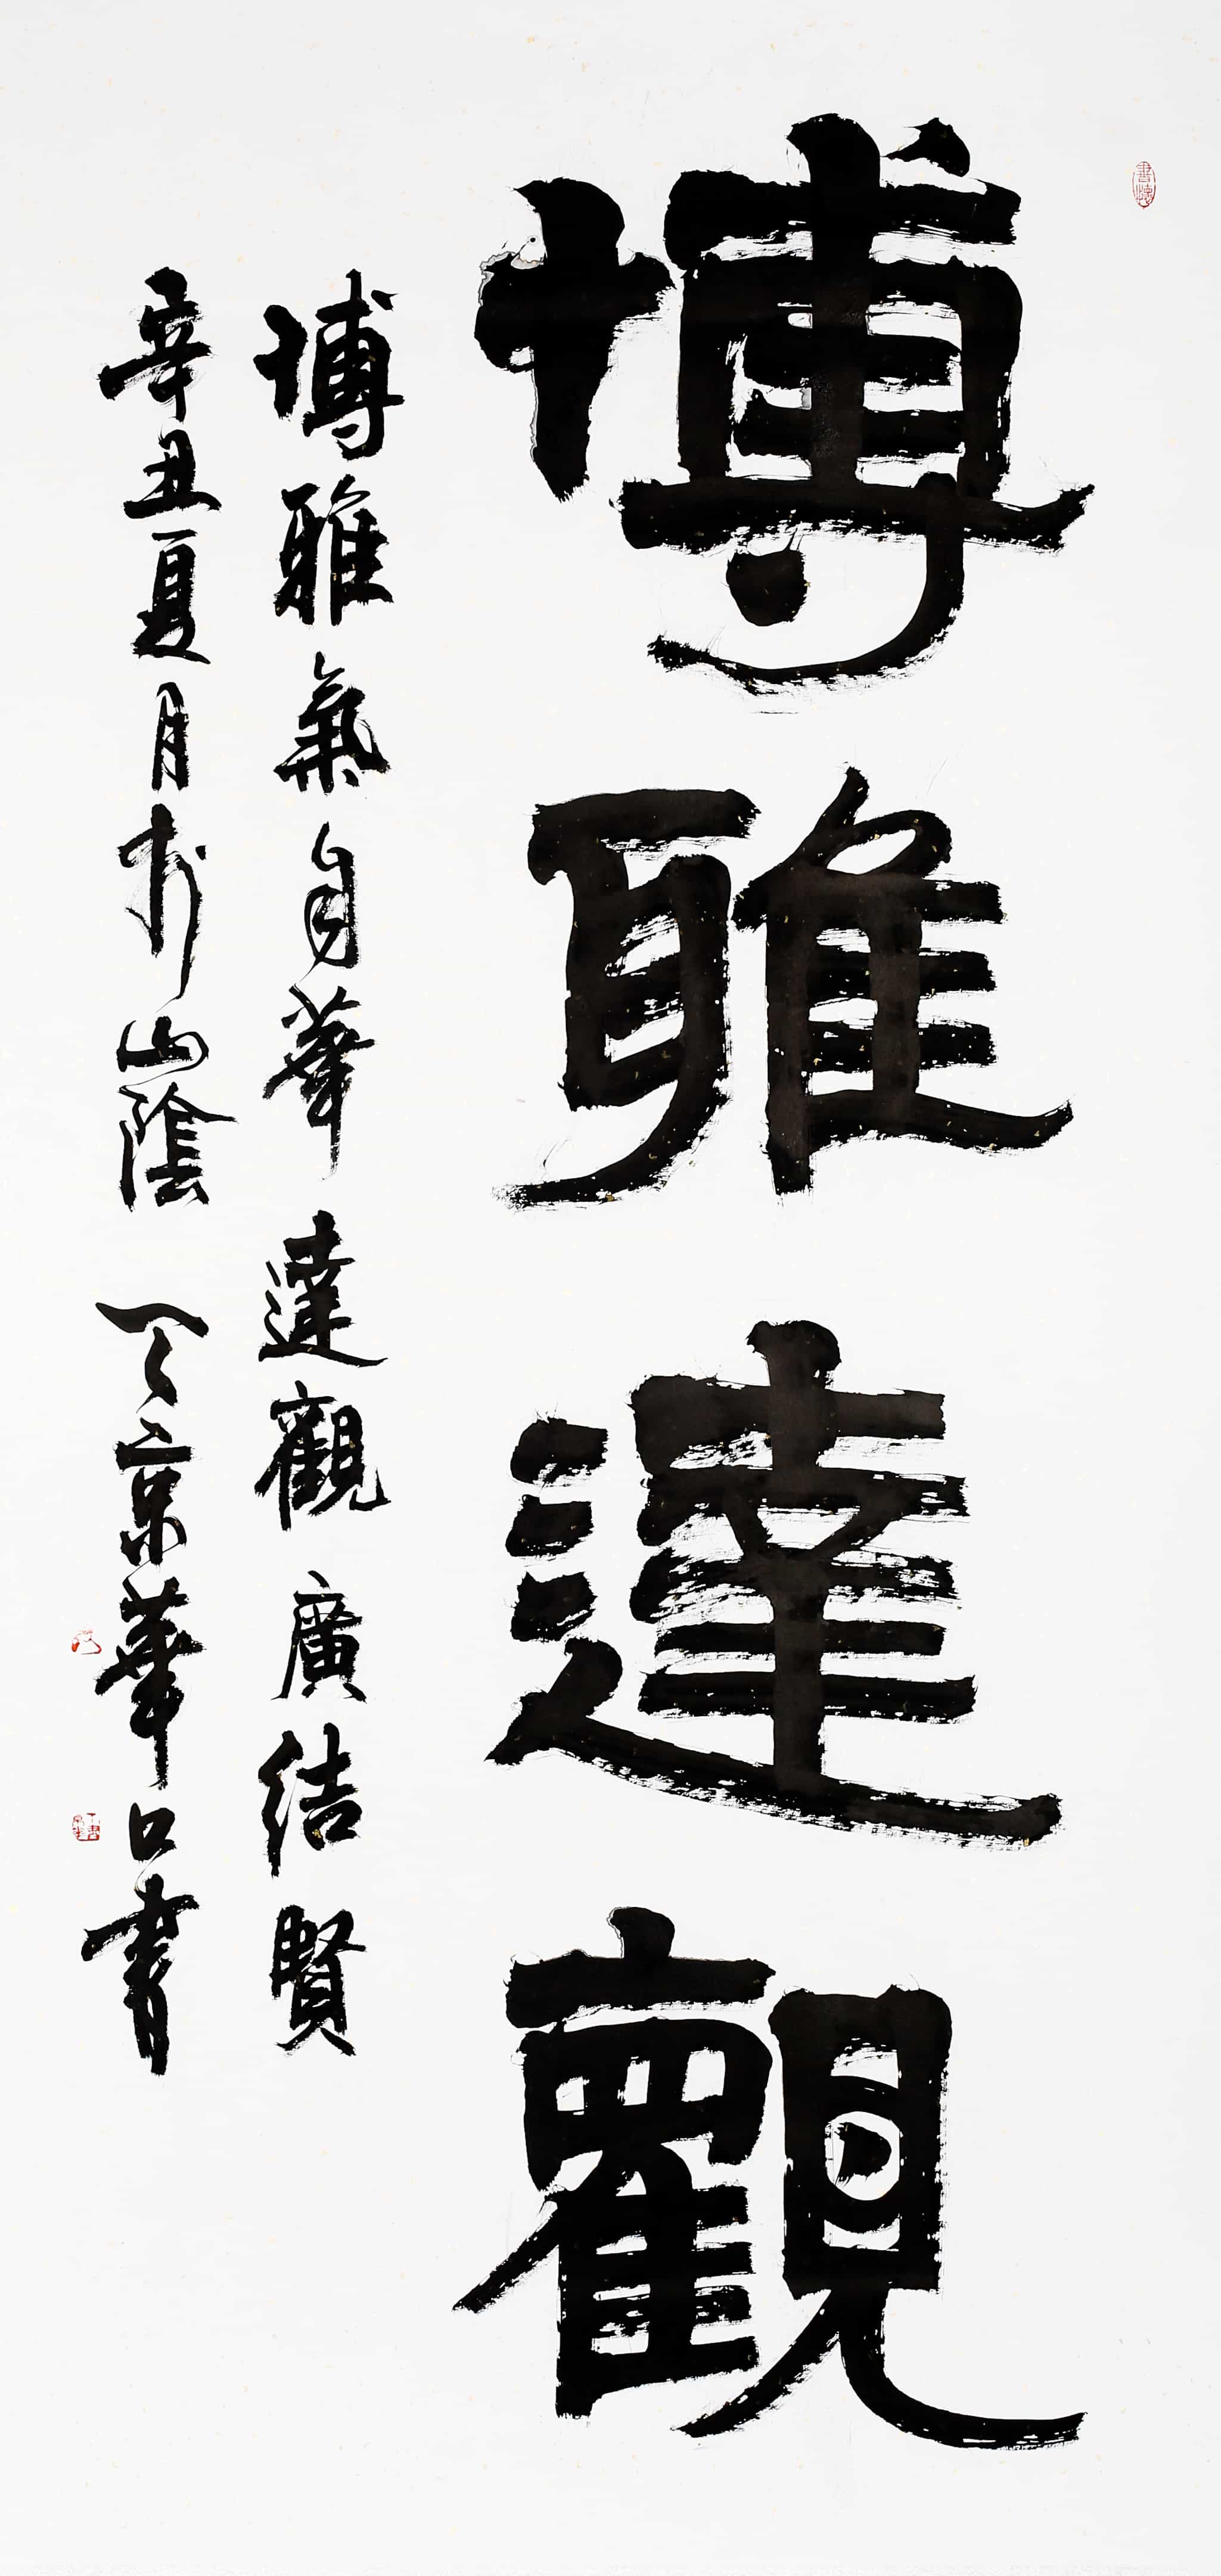 書懷
博雅達觀
博雅氣自華 達觀廣結賢
辛丑夏月於山陰 丁京華口書